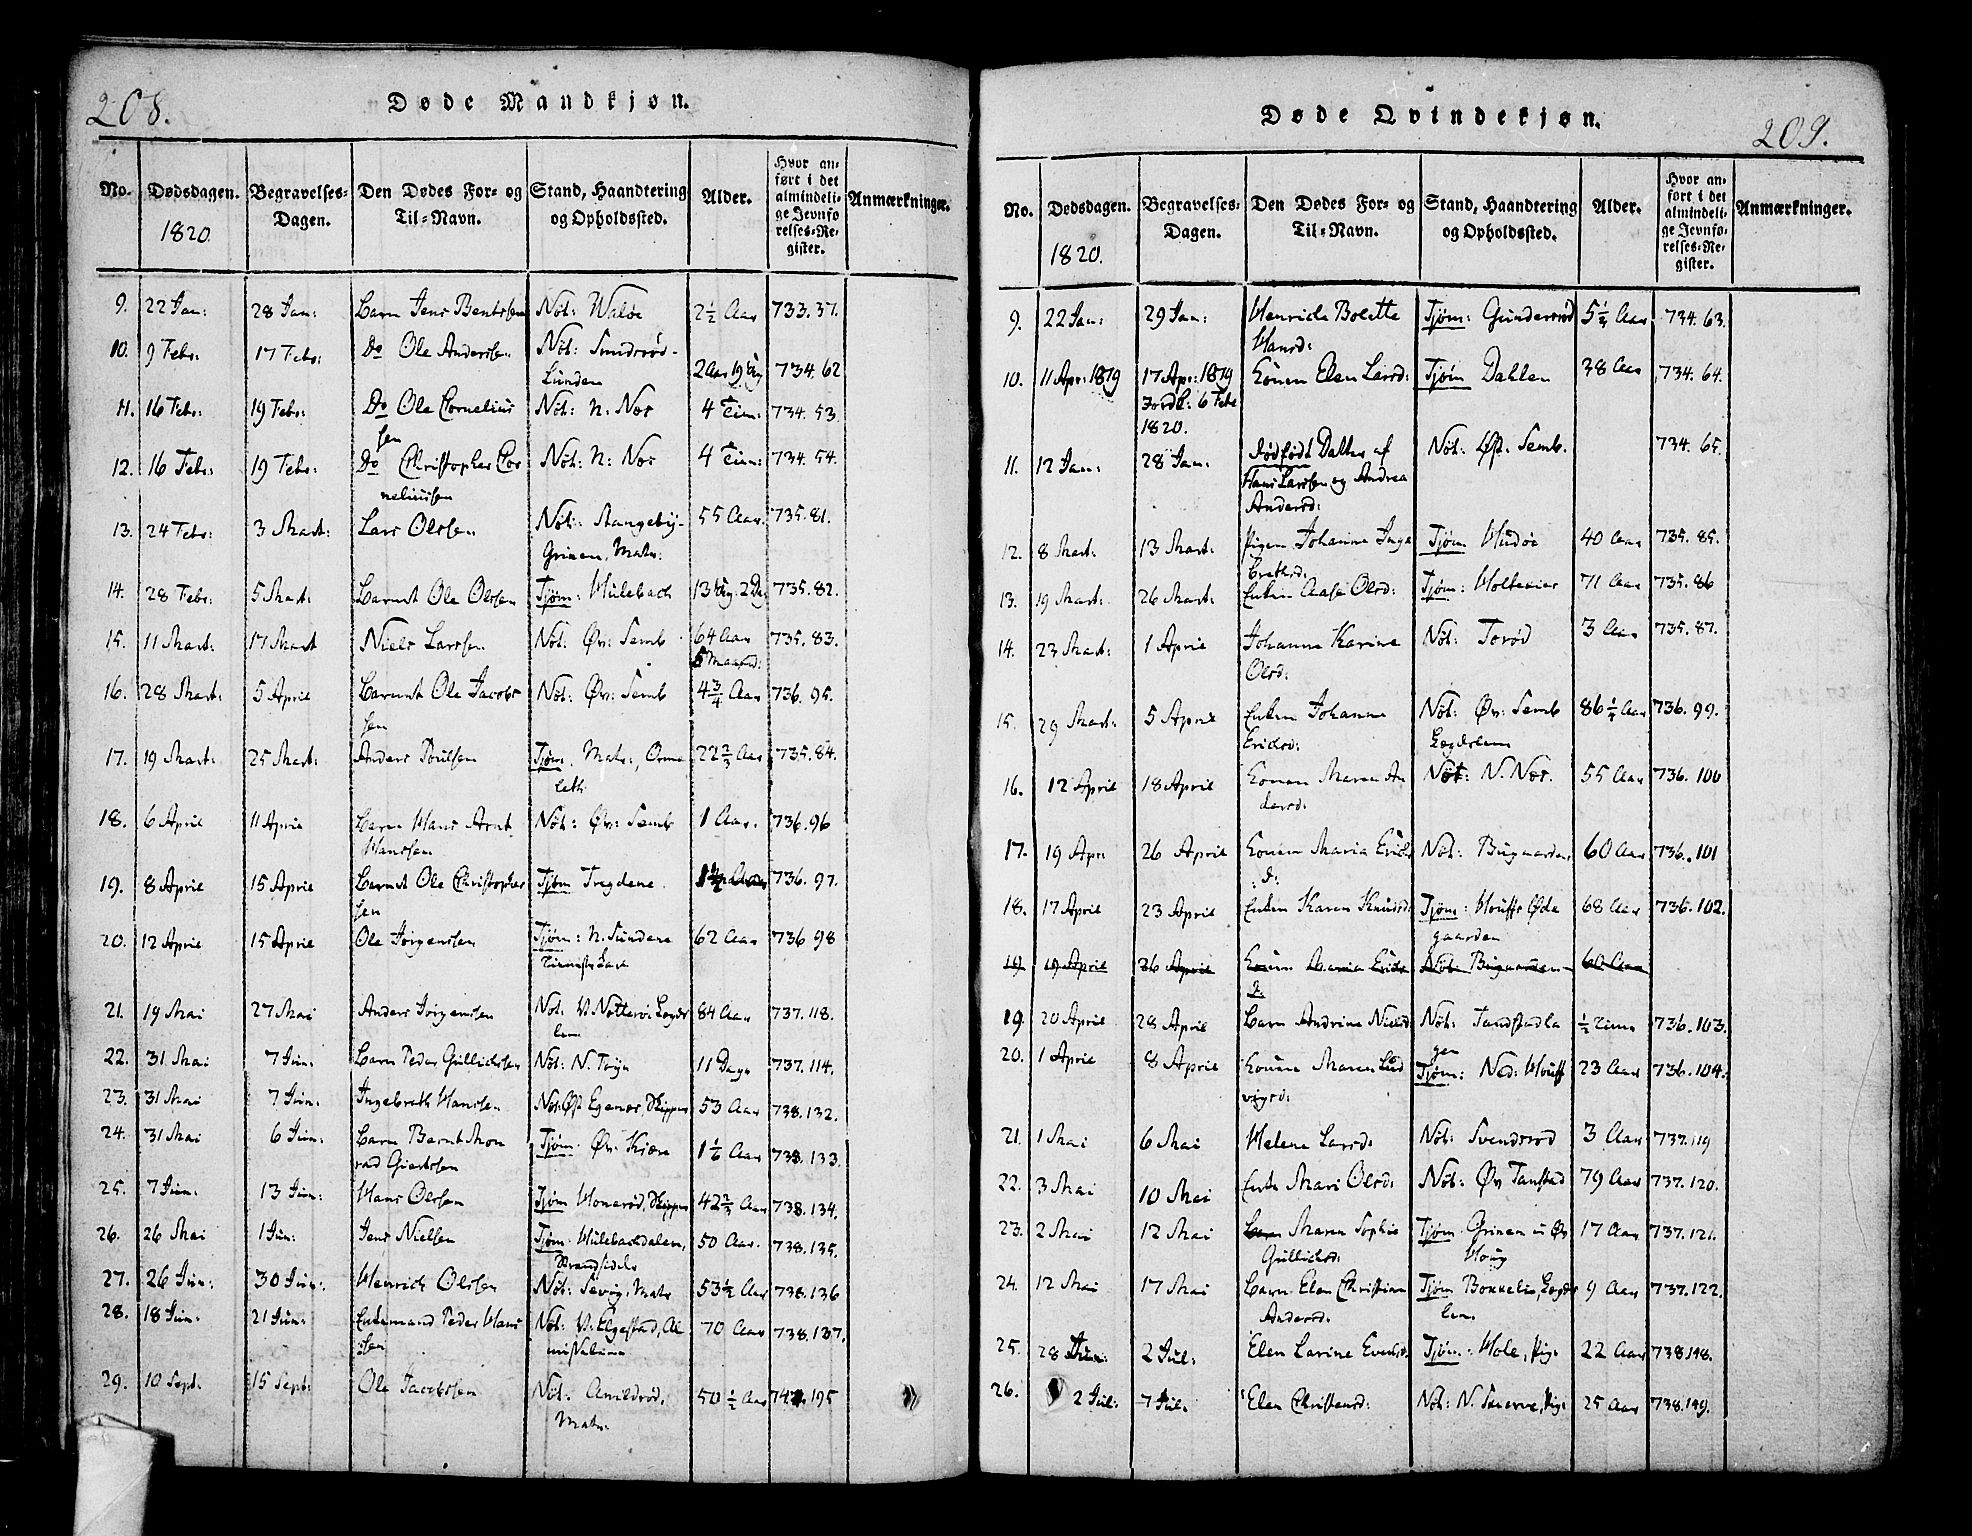 208.
Døde Mandkjøn.
No.
Dødsdagen.
1820.
Begravelses-
Dagen.
Den Dødes For- og
Til-Navn.
Stand, Haandtering
og Opholdssted.
Alder.
Hvor an-
ført i det
almindeli-
ge Jevnfø
relses-Re-
gister.
Anmærkninger.
9. 22 Jan: 28 Jan: Barn Jens Berntssen Nöt: Waløe 2½ Aar 733. 37.
10. 9 Febr: 17 Febr: Do Ole Anderssen Nöt: Smidsrød-
Lunden 2 Aar 19 Ug 734. 62
11. 16 Febr: 19 Febr: Do Ole Cornelius
sen Nöt: N: Nes 4 Tim: 734. 53.
12. 16 Febr: 19 Febr: Do Christopher Cor
neliussen Nöt: N: Nes 4 Tim: 734. 54.
13. 24 Febr: 3 Mart: Lars Olssen Nöt: Stangeby-
Grinen, Matr: 55 Aar. 735. 81.
14. 28 Febr: 5 Mart: Barnet Ole Olssen Tjøm: Hulebach 13 Ug. 2 Dg 735. 82.
15. 11 Mart: 17 Mart Niels Larssen Nöt: Øv: Semb 64 Aar
5 Maand: 735. 83.
16. 28 Mart: 5 April Barnet Ole Jacobs
sen Nöt: Øv: Semb 4¾ Aar 736. 95.
17. 19 Mart: 25 Mart: Anders Poulsen Tjøm. Matr:, Orme
leth: 22⅔ Aar 735. 84.
18. 6 April 11 April Barn Hans Arnt
Hanssen Nöt: Øv: Semb 1 Aar. 736. 96
19. 8 April 15 April Barnet Ole Christopher
sen Tjøm Tregdene. 1½ Aar 736. 97.
20. 12 April 15 April Ole Jörgenssen Tjøm: N. Sundene
62 Aar 736 98
21. 19 Mai 27 Mai Anders Jörgenssen Nöt: V: Nötterö: Lægds
lem 84 Aar 737. 118.
22. 31 Mai 7 Jun: Barn Peder Gullichssen Nöt: N. Teign 11 Dage 737. 114.
23. 31 Mai 7 Jun: Ingebreth Hanssen Nöt: Øst Egenes, Skipper 53 Aar 738. 132.
24. 31 Mai 6 Jun: Barn Bernt Mon
rad Giertssen Tjøm. Øv: Kiære 1⅙ Aar 738. 133.
25. 7 Jun: 13 Jun: Hans Olssen Tjøm Honerød, Skipper 42⅔ Aar 738. 134.
26. 26 Mai 1 Jun: Jens Nielsen Tjøm: Hulebachdalen,
Strandsidd: 50 Aar. 738. 135.
27. 26 Jun: 30 Jun: Henrich Olssen Nöt: Sevig: Matr 53½ Aar 738. 136
28. 18 Jun: 21 Jun: Enkemand Peder Hans
sen Nöt: V: Elgestad, Al
misselem 70 Aar 738. 137.
29. 10 Sept: 15 Sept: Ole Jacobssen Nöt: Amildrød,
Matr. 50½ Aar 741. 195
Døde Qvindekjøn.
209.
No.
Dødsdagen.
1820.
Begravelses-
Dagen.
Den Dødes For- og
Til-Navn.
Stand, Haandtering
og Opholdssted.
Alder.
Hvor an-
ført i det
almindeli-
ge Jevnfø-
relses-Re-
gister.
Anmærkninger.
9. 22 Jan: 29 Jan: Henricke Bolette
Hansd: Tjøm: Gundersrød 5¼ Aar 734. 63.
10. 11 Apr: 1819 17 Apr: 1819
Jordk: 6 Febr
1820. Konen Elen Larsd: Tjøm Dahlen 38 Aar 734. 64.
11. 12 Jan: 28 Jan: Dødfødt Datter af
Hans Larssen og Andrea
Andersd: Nöt: Øst: Semb. 734. 65.
12. 8 Mart: 13 Mart: Pigen Johanne Inge
brethsd: Tjøm Hudøe 40 Aar 735. 85.
13. 19 Mart: 26 Mart: Enken Aase Olsd: Tjøm: Holtekier 71 Aar 735. 86
14. 23 Mart: 1 April Johanne Karine
Olsd: Nöt: Torød 3 Aar 735. 87.
15. 29 Mart: 5 April Enken Johanne
Ericksd: Nöt: Øv: Semb
Lægdslem 86¼ Aar 736. 99.
16. 12 April 18 April Konen Maren An
dersd: Nöt: N. Nes. 55 Aar 736. 100
17. 19 Apr: 26 April Konen Maria Ericks
d: Nöt: Bugaarden 60 Aar 736. 101
18. 17 April 23 April Enken Karen Knudsd: Tjøm: Houffs Øde
gaarden 68 Aar 736. 102.
19 19 April 26 April Konen Maria Ericks
d: Nöt: Bugaarden 60 Aar
19. 20 April 28 April Barn Andrine Nielsd: Nöt: Tandstadla
gen ½ Time 736. 103.
20. 1 April 8 April Konen Maren Lud
vigsd: Tjøm: Ned: Houff 23 Aar 736. 104.
21. 1 Mai 6 Mai Helene Larsd: Nöt: Svendsrød 3 Aar 737. 119
22. 3 Mai 10 Mai Enke Mari Olsd: Nöt: Øv Tanstad 79 Aar 737. 120.
23. 2 Mai 12 Mai Maren Sophie
Gullichsd: Tjøm. Grinen u: Øv
Houg 17 Aar 737. 121.
24. 12 Mai 17 Mai Barn Elen Christian
Andersd: Tjøm Bokkelie, Lægds
lem. 9 Aar 737. 122.
25. 28 Jun: 2 Jul: Elen Larine Evensd: Tjøm: Hole, Pig: 22 Aar 738. 148.
26. 2 Jul: 7 Jul: Elen Christensd: Nöt: N. Snerve, Pig: 25 Aar 738. 149.